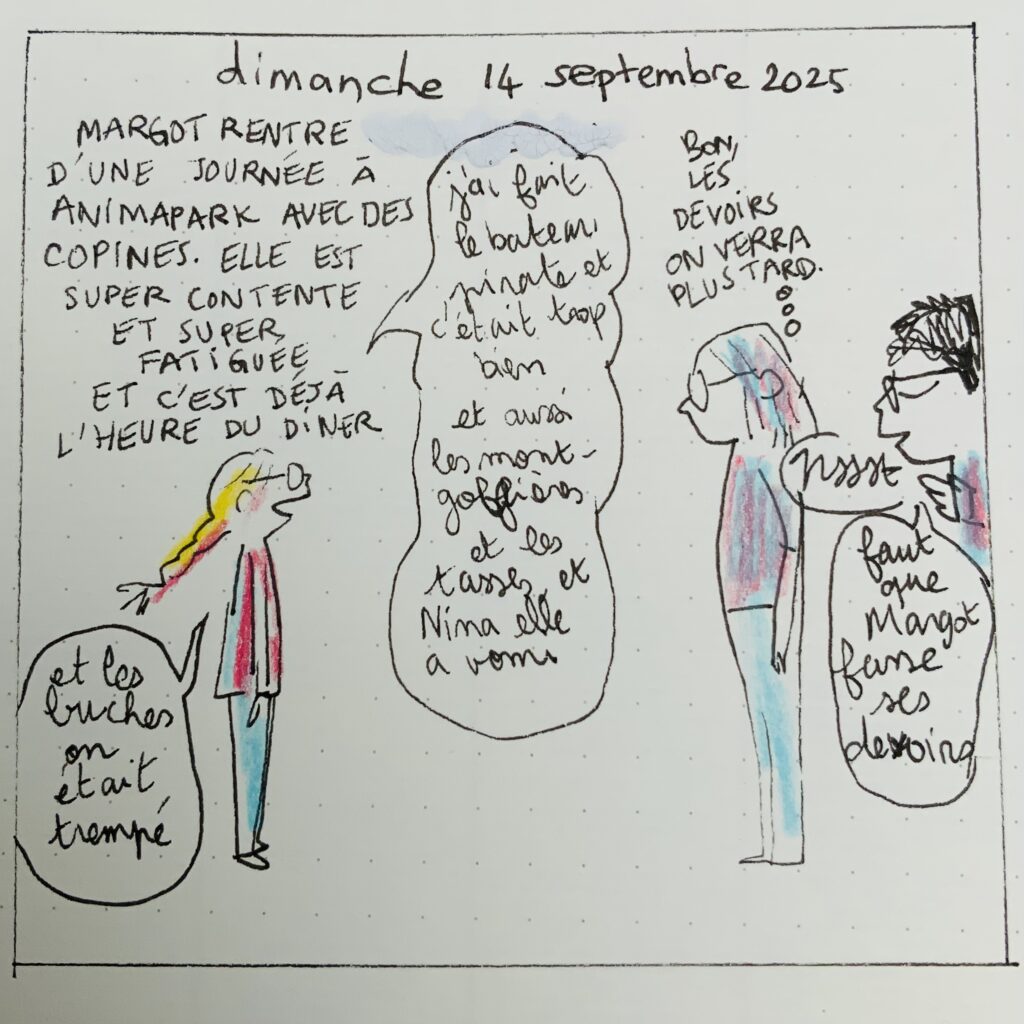 dimanche 14 septembre 2025
MARGOT RENTRE
D'UNE JOURNÉE À
ANIMAPARK AVEC DES
COPINES. ELLE EST
SUPER CONTENTE
ET SUPER
FATIGUÉE
ET C'EST DÉJÀ
L'HEURE DU DÎNER
j'ai fait
le bateau
pirate et
c'était trop
bien
et aussi
les mont-
golfières
et les
tasses et
Nina elle
a vomi
et les
buches
on
était
trempé
BON,
LES
DEVOIRS
ON VERRA
PLUS TARD.
pssst
faut
que
Margot
fasse
ses
devoirs